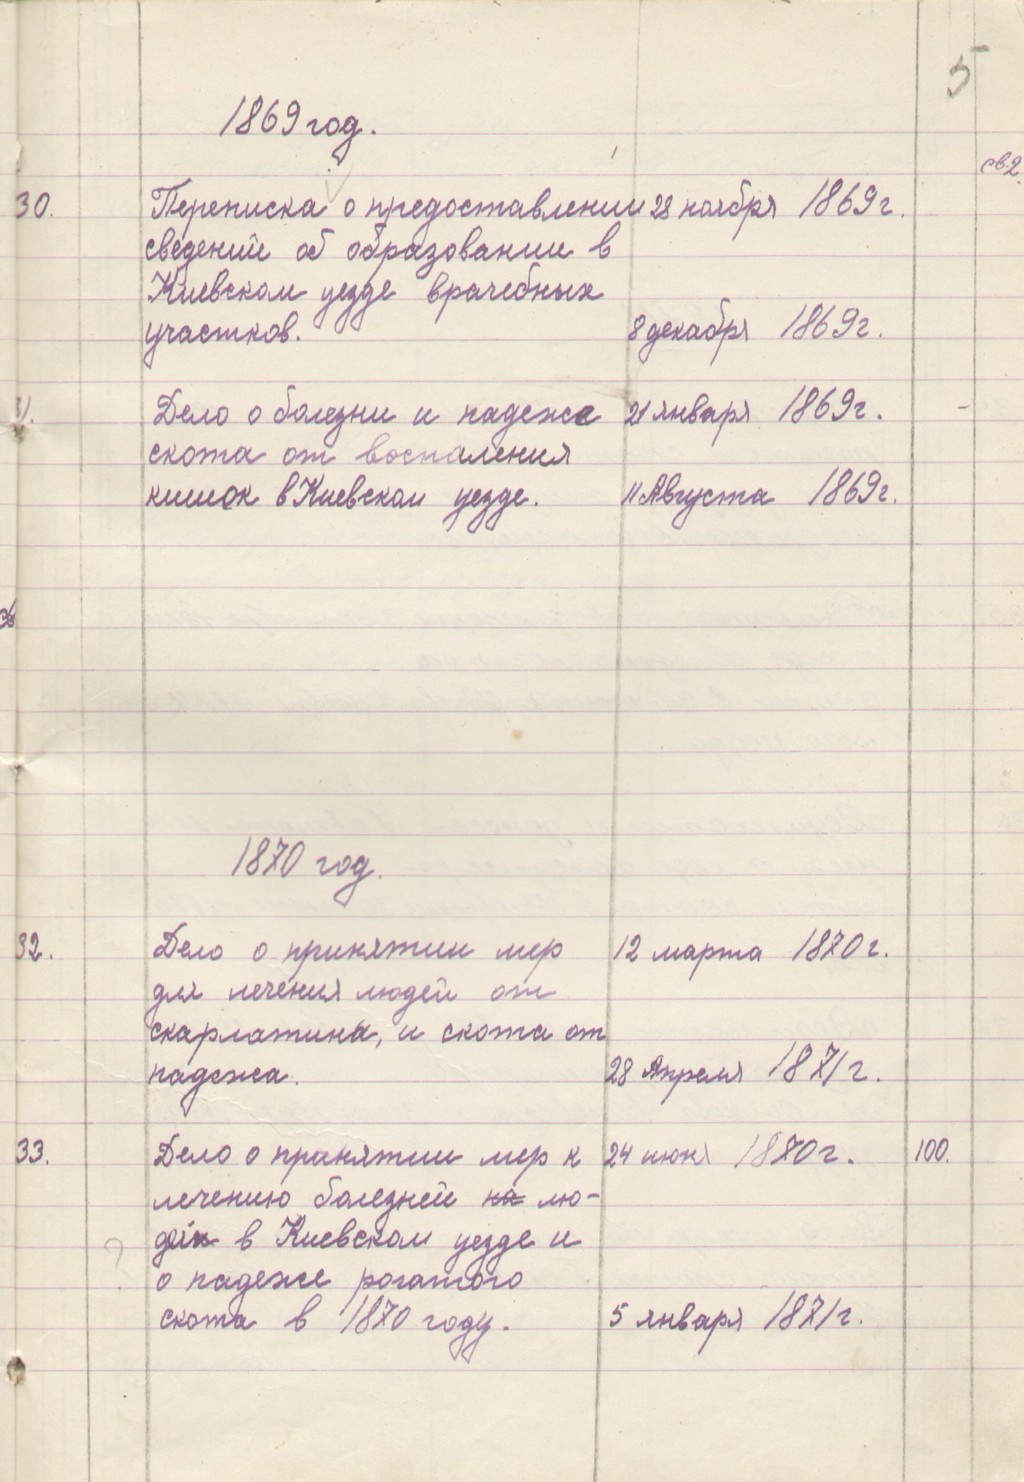 5
1869 год.
св.2
30. Переписка о предоставлении 28 ноября 1869 г.
сведений об образовании в
Киевском уезде врачебных
участков. 8 декабря 1869 г.
31. Дело о болезни и падеже 21 января 1869 г. -
скота от воспаления
кишок в Киевском уезде. 11 Августа 1869 г.
1870 год.
32. Дело о принятии мер 12 марта 1870 г.
для лечения людей от
скарлатины, и скота от
падежа. 28 Апреля 1871 г.
33. Дело о принятии мер к 24 июня 1870 г. 100.
лечению болезней на лю-
дей в Киевском уезде и
? о падеже рогатого
скота в 1870 году. 5 января 1871 г.